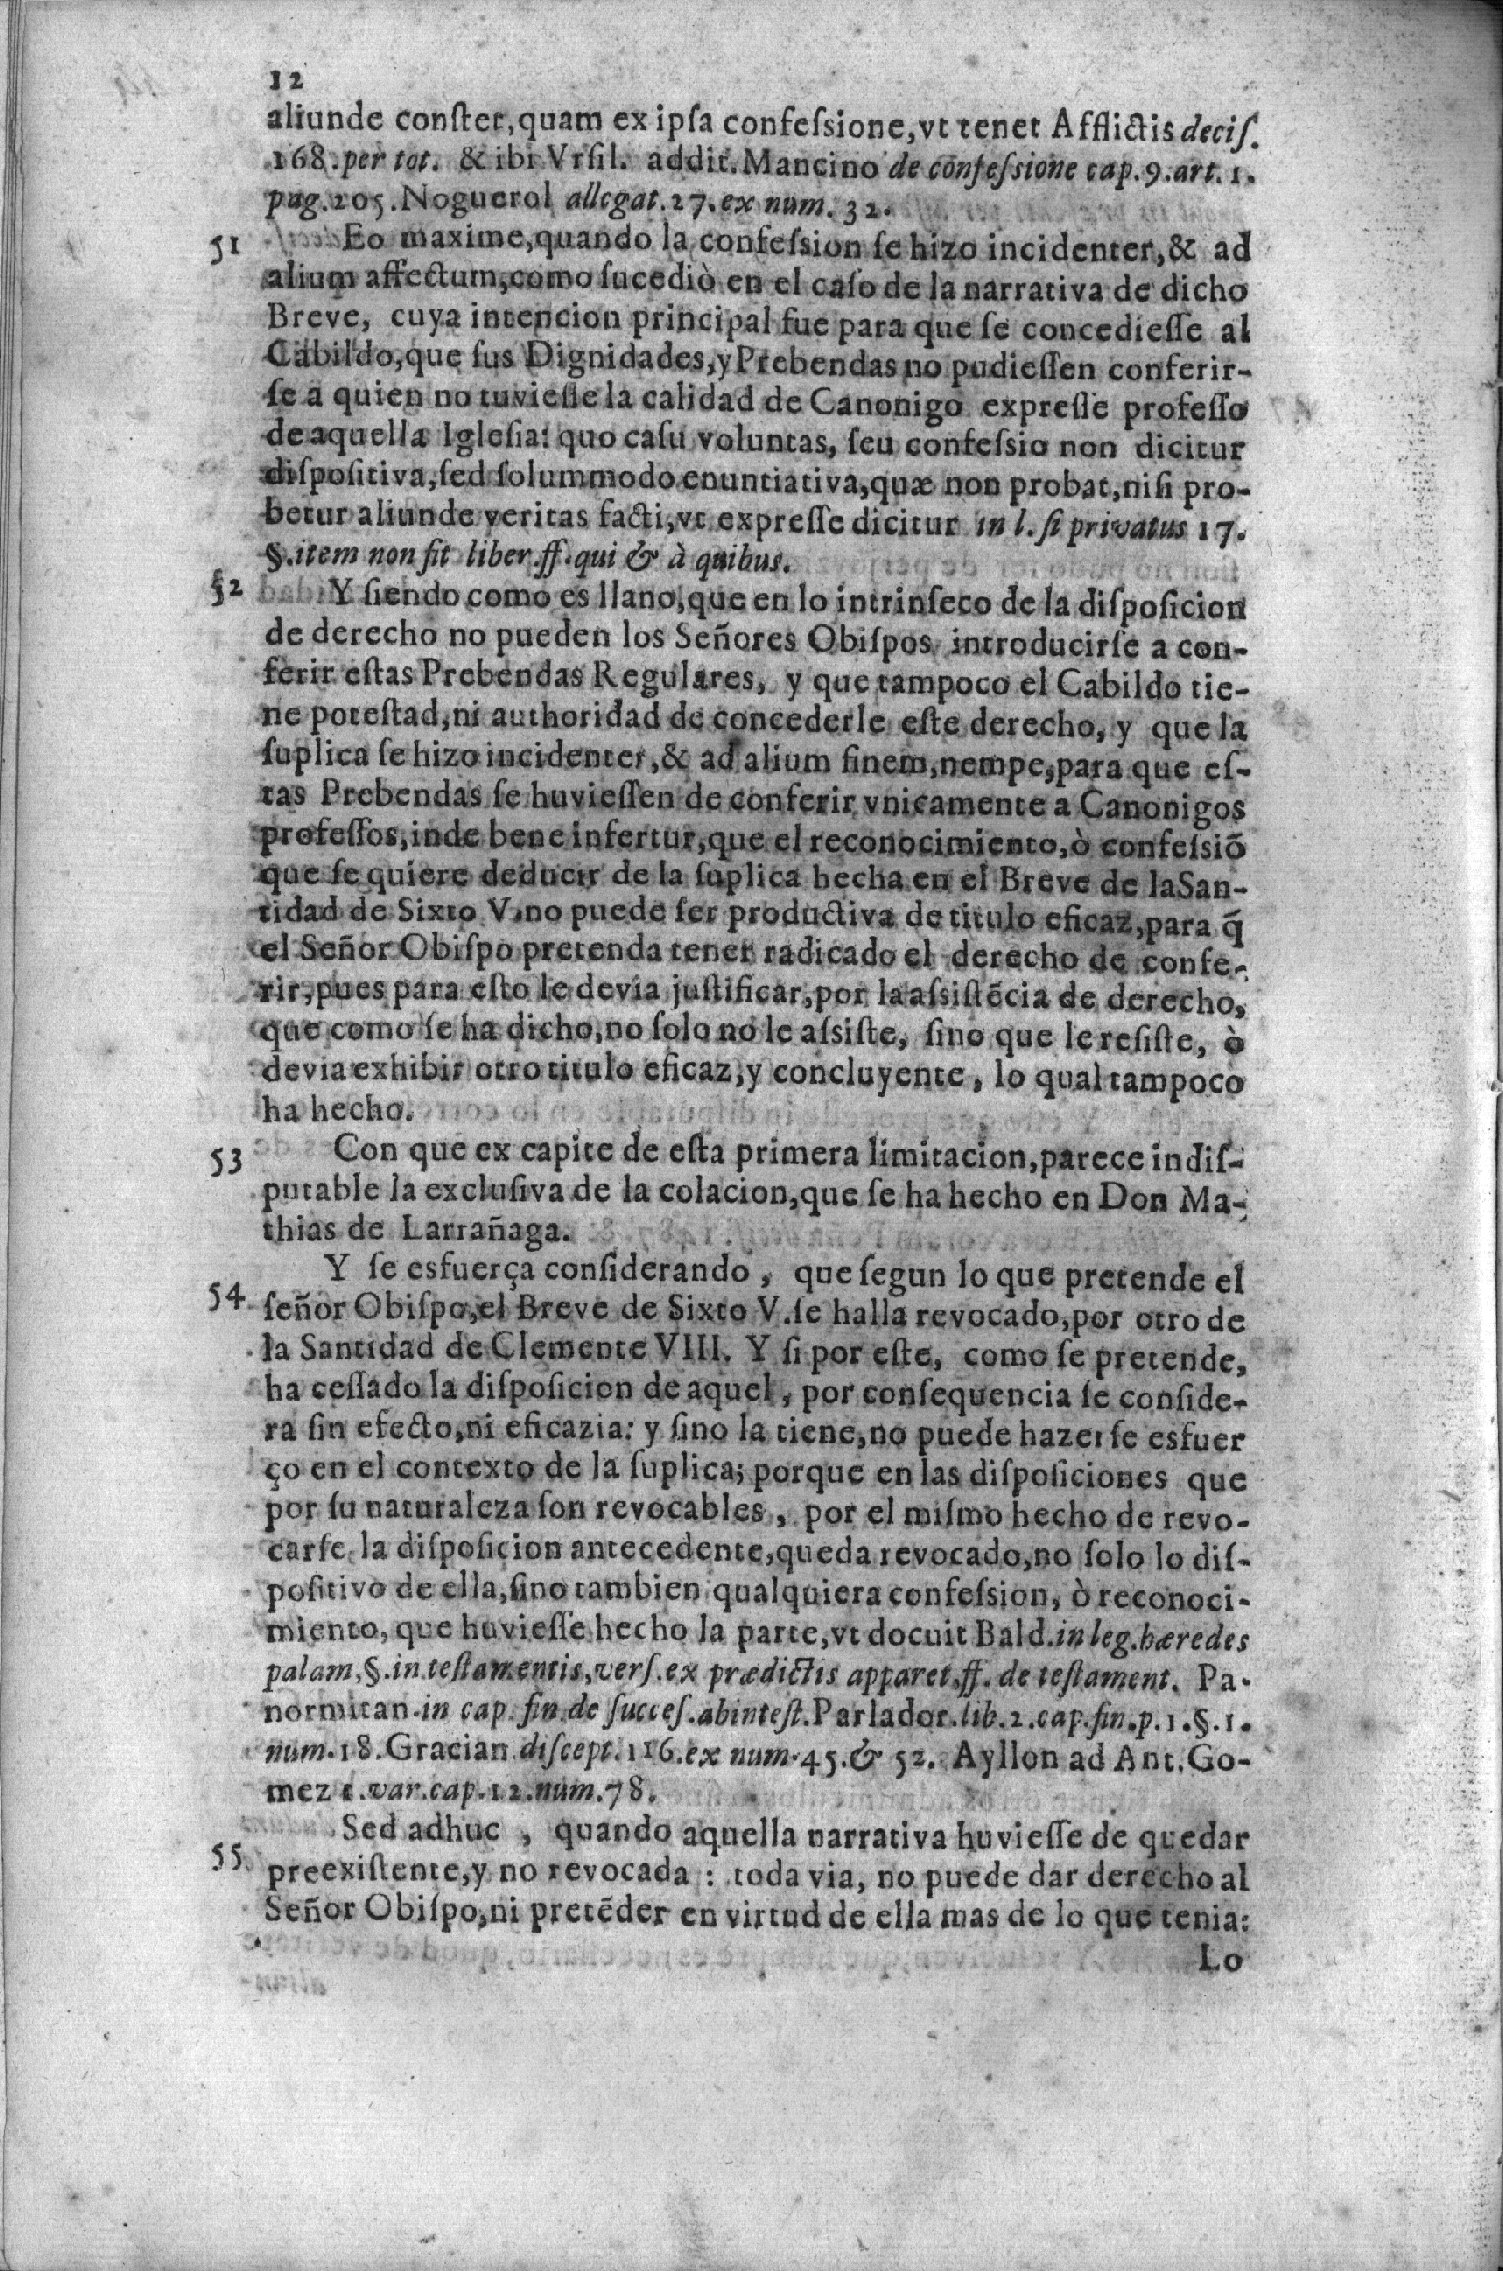 12
aliunde conſtet, quam ex ipſa confeſsione, vt tenet Afflictis deciſ.
168. per tot. & ibi Vrſil. addit. Mancino de confeſsione cap. 9. art. 1.
pag. 205. Noguerol allegat. 27. ex num. 32.
51 Eo maxime, quando la confeſsion ſe hizo incidenter, & ad
alium affectum, como ſucediò en el caſo de la narrativa de dicho
Breve, cuya intencion principal fue para que ſe concedieſſe al
Cabildo, que ſus Dignidades, y Prebendas no pudieſſen conferir-
ſe a quien no tuvieſſe la calidad de Canonigo expreſſe profeſſo
de aquella Igleſia: quo caſu voluntas, ſeu confeſsio non dicitur
diſpoſitiva, ſed ſolummodo enuntiativa, quæ non probat, niſi pro-
betur aliunde veritas facti, vt expreſſe dicitur in l. ſi privatus 17.
§. item non fit liber. ff. qui & à quibus.
52 Y ſiendo como es llano, que en lo intrinſeco de la diſpoſicion
de derecho no pueden los Señores Obiſpos introducirſe a con-
ferir eſtas Prebendas Regulares, y que tampoco el Cabildo tie-
ne poteſtad, ni authoridad de concederle eſte derecho, y que la
ſuplica ſe hizo incidenter, & ad alium finem, nempe, para que eſ-
tas Prebendas ſe huvieſſen de conferir vnicamente a Canonigos
profeſſos, inde bene infertur, que el reconocimiento, ò confeſsiõ
que ſe quiere deducir de la ſuplica hecha en el Breve de la San-
tidad de Sixto V. no puede ſer productiva de titulo eficaz, para q̃
el Señor Obiſpo pretenda tener radicado el derecho de confe-
rir, pues para eſto le devia juſtificar, por la aſsiſtẽcia de derecho,
que como ſe ha dicho, no ſolo no le aſsiſte, ſino que le reſiſte, ò
devia exhibir otro titulo eficaz, y concluyente, lo qual tampoco
ha hecho.
53 Con que ex capite de eſta primera limitacion, parece indiſ-
putable la excluſiva de la colacion, que ſe ha hecho en Don Ma-
thias de Larrañaga.
54 Y ſe esfuerça conſiderando, que ſegun lo que pretende el
ſeñor Obiſpo, el Breve de Sixto V. ſe halla revocado, por otro de
la Santidad de Clemente VIII. Y ſi por eſte, como ſe pretende,
ha ceſſado la diſpoſicion de aquel, por conſequencia ſe conſide-
ra ſin efecto, ni eficazia: y ſino la tiene, no puede hazerſe esfuer
ço en el contexto de la ſuplica; porque en las diſpoſiciones que
por ſu naturaleza ſon revocables, por el miſmo hecho de revo-
carſe la diſpoſicion antecedente, queda revocado, no ſolo lo diſ-
poſitivo de ella, ſino tambien qualquiera confeſsion, ò reconoci-
miento, que huvieſſe hecho la parte, vt docuit Bald. in leg. hæredes
palam, §. in teſtamentis, verſ. ex prædictis apparet, ff. de teſtament. Pa-
normitan. in cap. fin. de ſucceſ. abinteſt. Parlador. lib. 2. cap. fin. p. 1. §. 1.
num. 18. Gracian diſcept. 116. ex num. 45. & 52. Ayllon ad Ant. Go-
mez 1. var. cap. 12. num. 78.
55 Sed adhuc, quando aquella narrativa huvieſſe de quedar
preexiſtente, y no revocada: toda via, no puede dar derecho al
Señor Obiſpo, ni pretẽder en virtud de ella mas de lo que tenia:
Lo